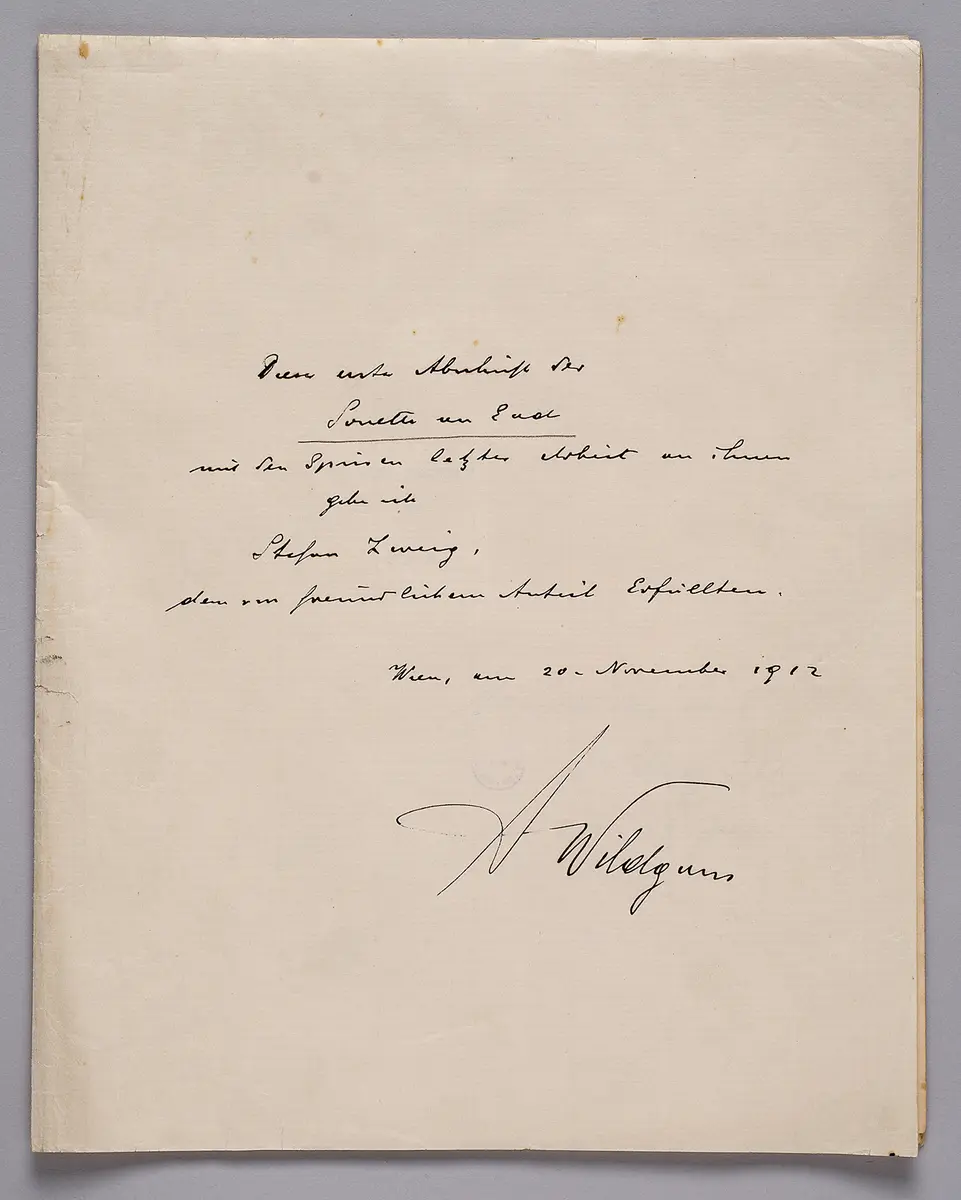 Diese erste Abschrift der
Sonette an Ead
mit den Spuren letzter Arbeit an ihnen
gebe ich
Stefan Zweig,
dem von freundlichem Anteil Erfüllten.
Wien, am 20. November 1912
A Wildgans